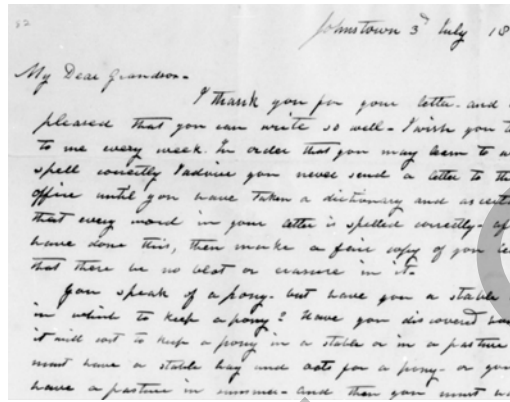 82
Johnstown 3d July 18
My Dear Grandson-
I thank you for your letter- and
pleased that you can write so well- I wish you t
to me every week. In order that you may learn to w
spell correctly I advise you never send a letter to the
office until you have taken a dictionary and ascertai
that every word in your letter is spelled correctly- af
have done this, then make a fair copy of your le
that there be no blot or erasure in it-
You speak of a pony- but have you a stable
in which to keep a pony? Have you discovered
it will cost to keep a pony in a stable or in a pasture
must have a stable hay and oats for a pony- or you
have a pasture in summer- and then you must